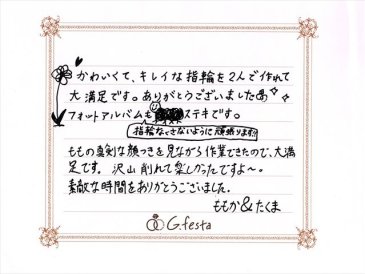 かわいくて、キレイな指輪を2人で作れて
大満足です。ありがとうございました
フォットアルバムも ステキです。
指輪なくさないように頑張ります!!
ももの真剣な顔つきを見ながら作業できたので、大満
足です。沢山削れて楽しかったですよ〜。
素敵な時間をありがとうございました。
ももか&たくま
G.festa